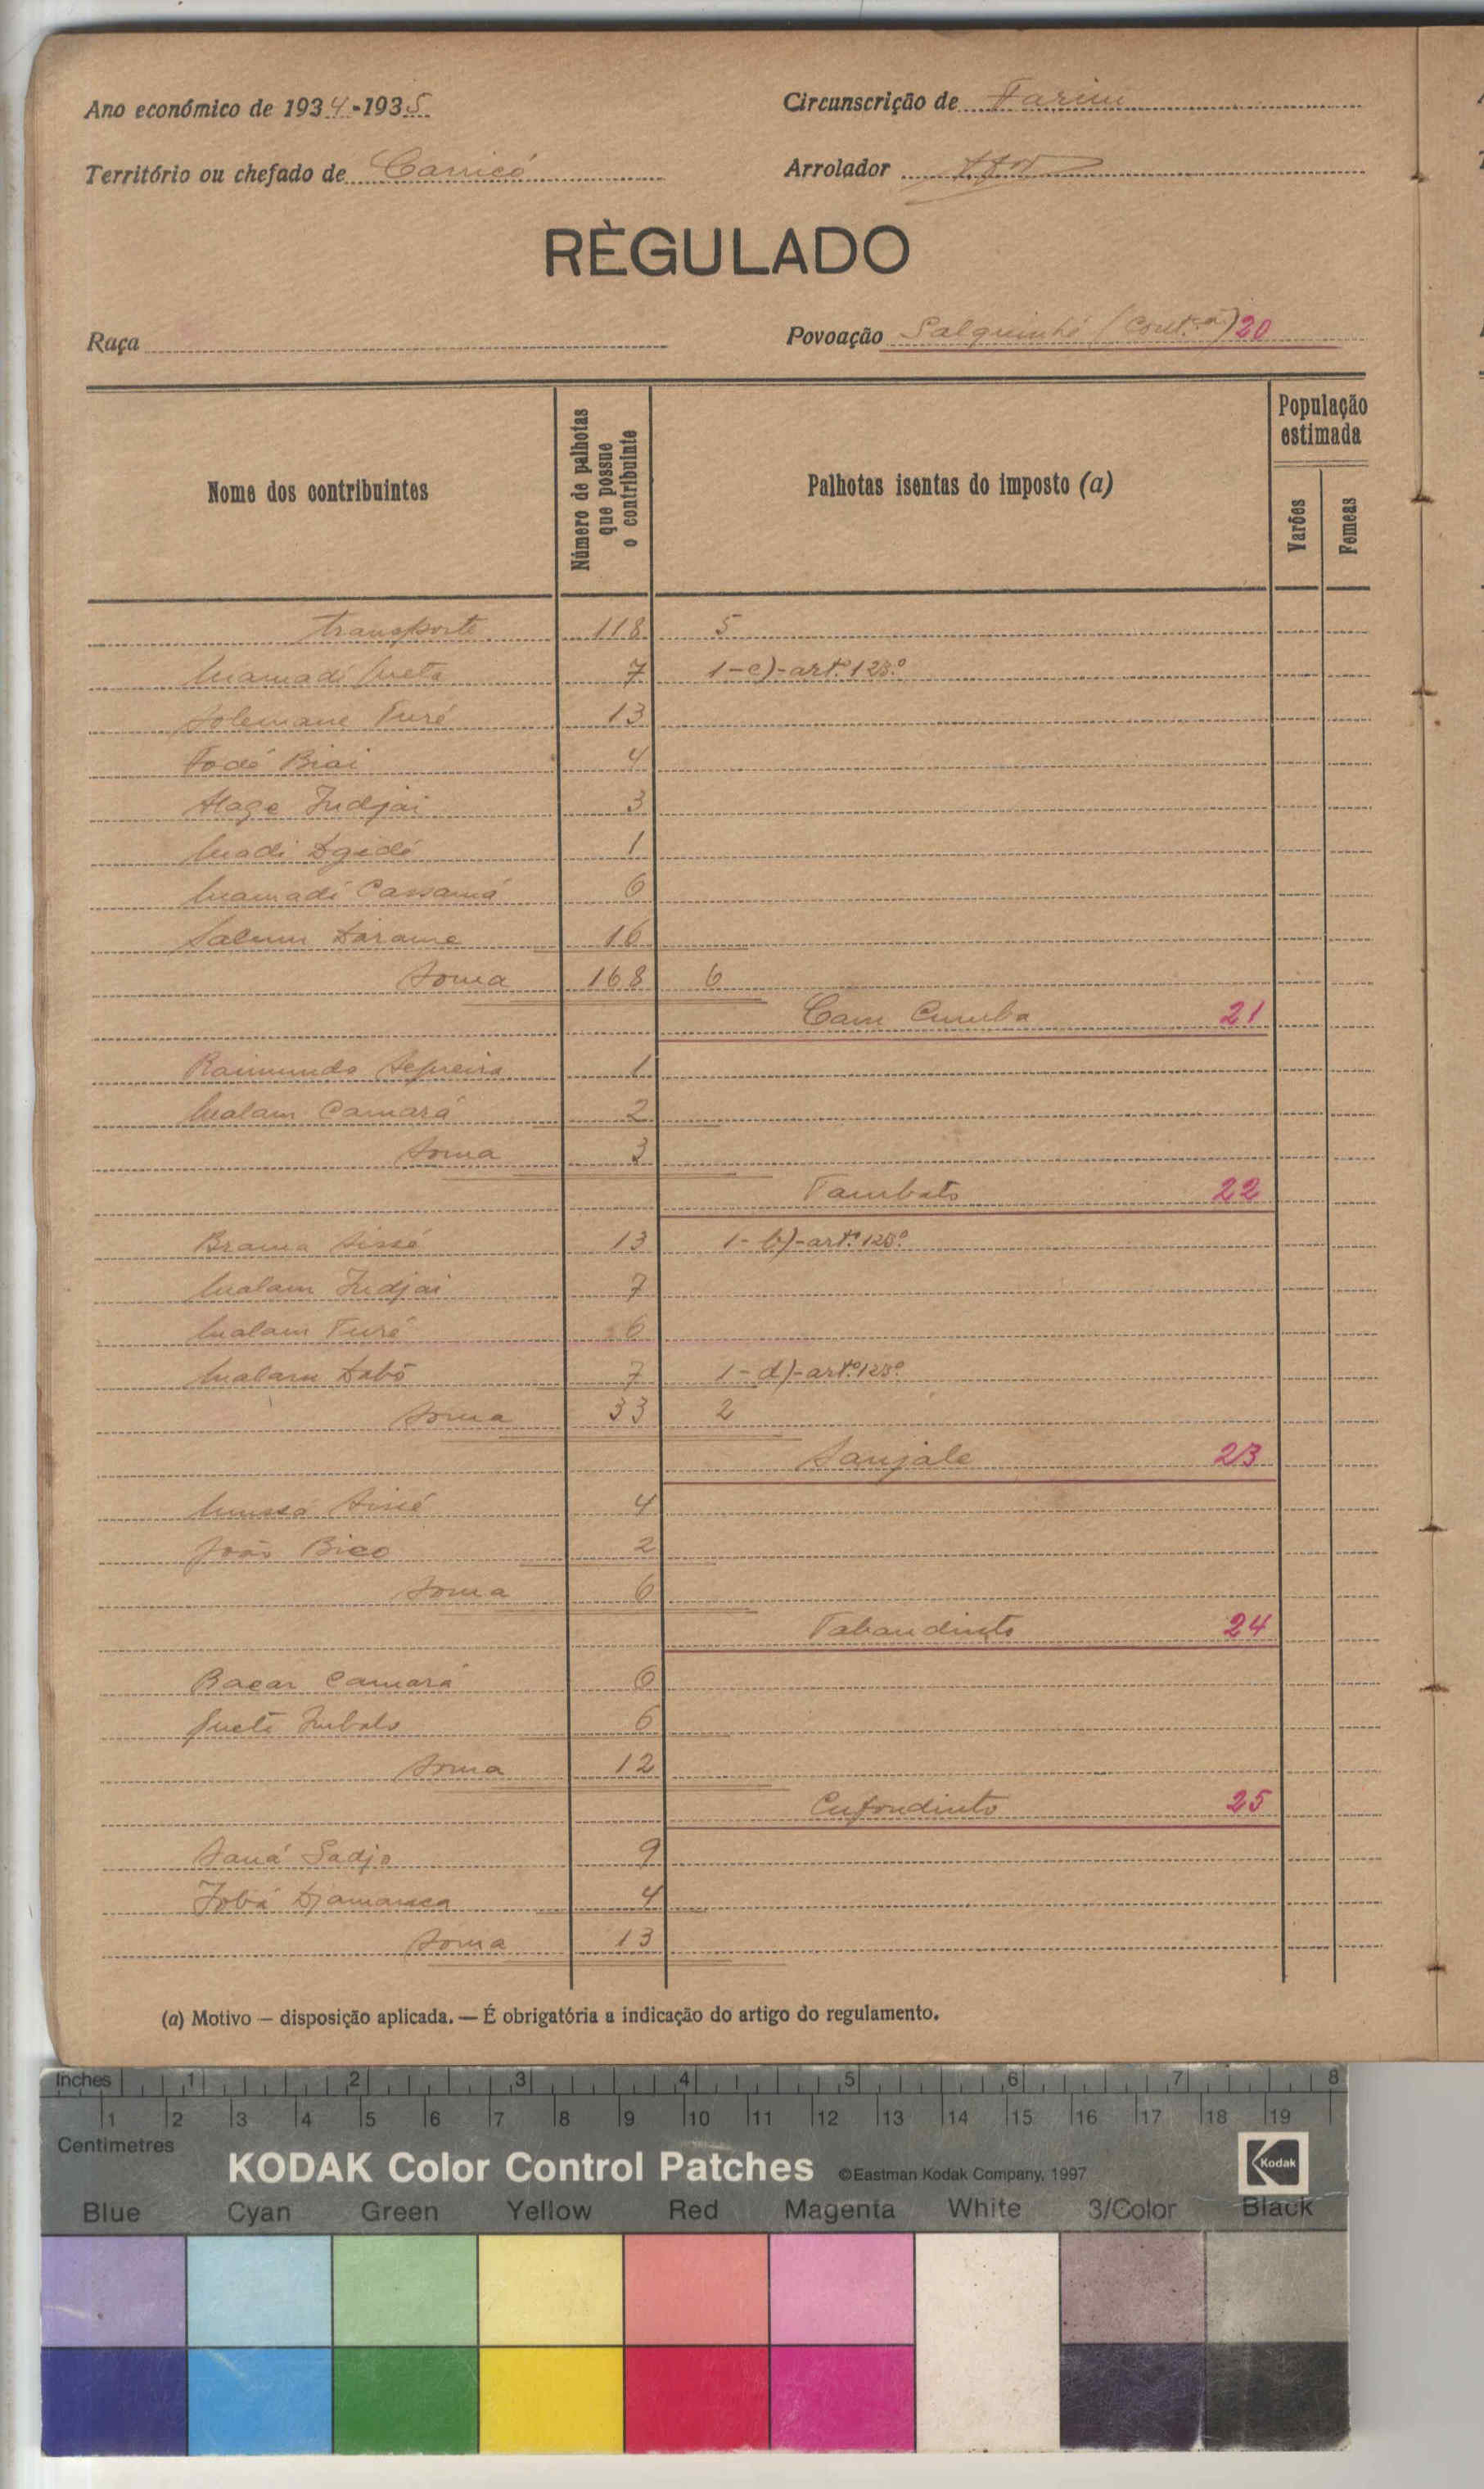 Ano económico de 1934-1935 Circunscrição de Farim
Território ou chefado de Canicó Arrolador
RÈGULADO
Raça Povoação Salquinhé (Cont.ª) 20
Nome dos contribuintes Número de palhotas que possue o contribuinte Palhotas isentas do imposto (a) População estimada Varões Femeas
Transporte 118 5
Mamadi 7 1-c)-art.º 123.º
Solemane Turé 13
Fodé Biai 4
Alage Indjai 3
Madi 1
Mamadi Cassamá 6
Salum Darame 16
Soma 168 6
Cam Cumba 21
Raimundo 1
Malam Camará 2
Soma 3
Tambato 22
Brama Sissé 13 1-b)-art.º 123.º
Malam Indjai 7
Malam Turé 6
Malam Dabó 7 1-d)-art.º 123.º
Soma 33 2
Sanjale 23
Mussá Sissé 4
João Bico 2
Soma 6
Tabandinto 24
Bacar Camará 6
Queti Imbalo 6
Soma 12
Cufondinto 25
Saná Sadjo 9
Jobá Djamanca 4
Soma 13
(a) Motivo — disposição aplicada. — É obrigatória a indicação do artigo do regulamento.
Inches 1 2 3 4 5 6 7 8
1 2 3 4 5 6 7 8 9 10 11 12 13 14 15 16 17 18 19
Centimetres
KODAK Color Control Patches ©Eastman Kodak Company, 1997 Kodak
Blue Cyan Green Yellow Red Magenta White 3/Color Black